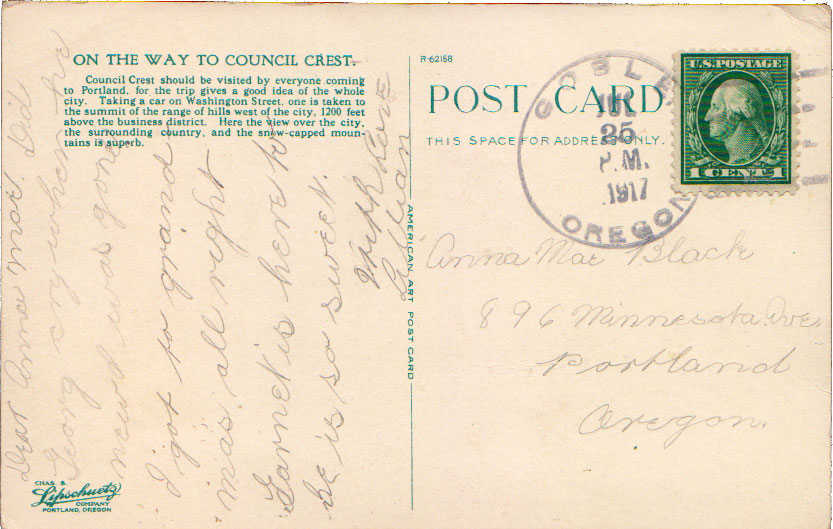 ON THE WAY TO COUNCIL CREST.
Council Crest should be visited by everyone coming
to Portland, for the trip gives a good idea of the whole
city. Taking a car on Washington Street, one is taken to
the summit of the range of hills west of the city, 1200 feet
above the business district. Here the view over the city,
the surrounding country, and the snow-capped moun-
tains is superb.
Dear Anna Mae,
anywhere
was gone
I got to grand
ma's all right
Garnet is here to
he is so sweet.
With Love
Lillian
CHAS. S.
Lipschuetz
COMPANY
PORTLAND, OREGON
AMERICAN ART POST CARD
R-62158
POST CARD
THIS SPACE FOR ADDRESS ONLY.
GOBLE
25
P.M.
1917
OREGON
U.S. POSTAGE
1 CENT 1
Anna Mae Black
896 Minnesota Ave
Portland
Oregon.